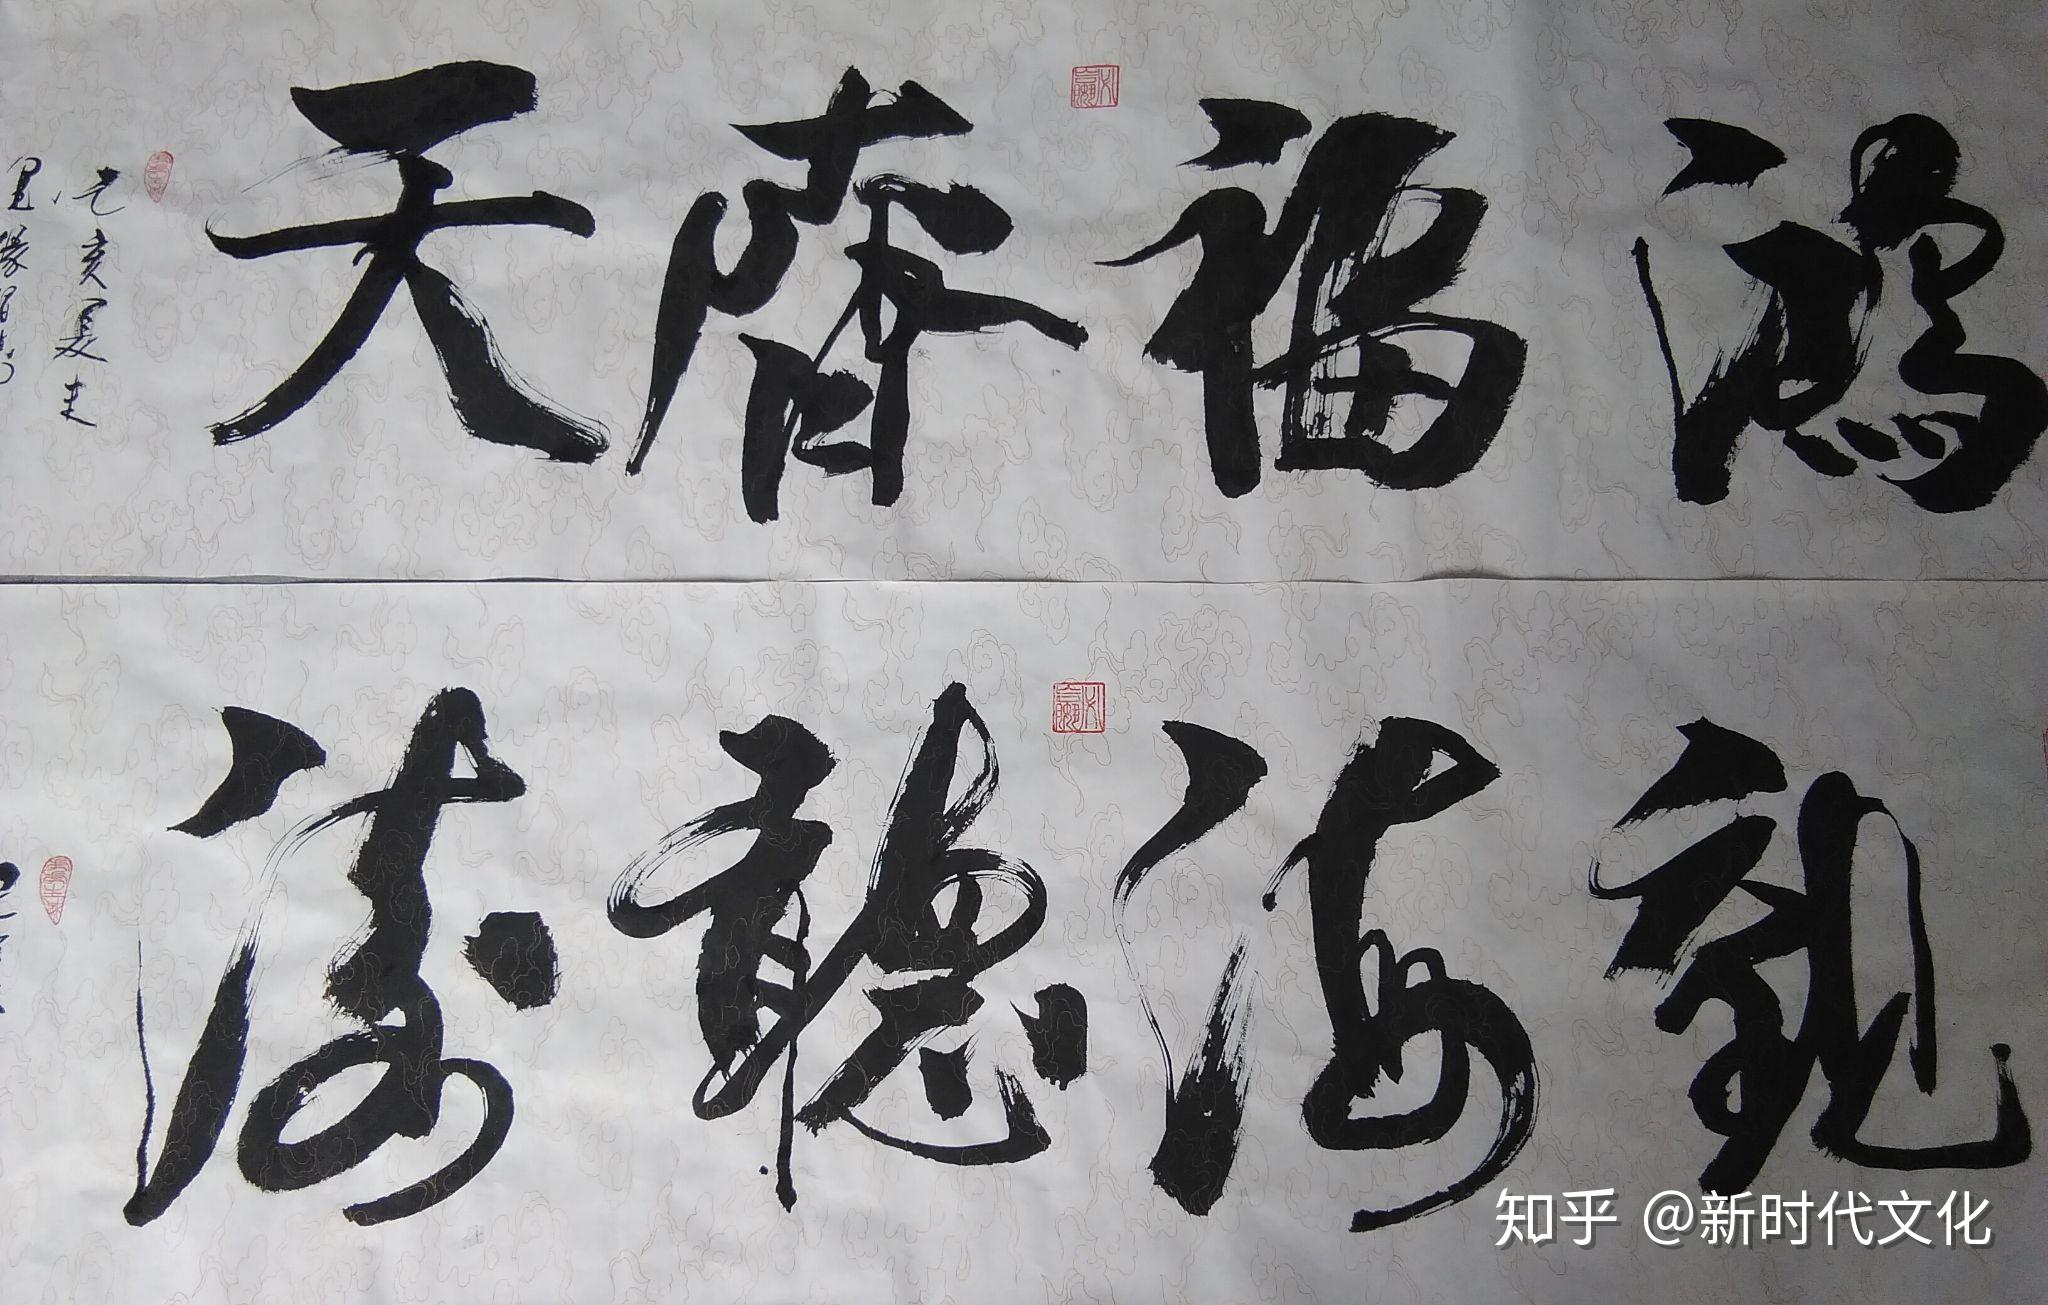 鸿福齐天
己亥夏末
观海听涛
知乎 @新时代文化